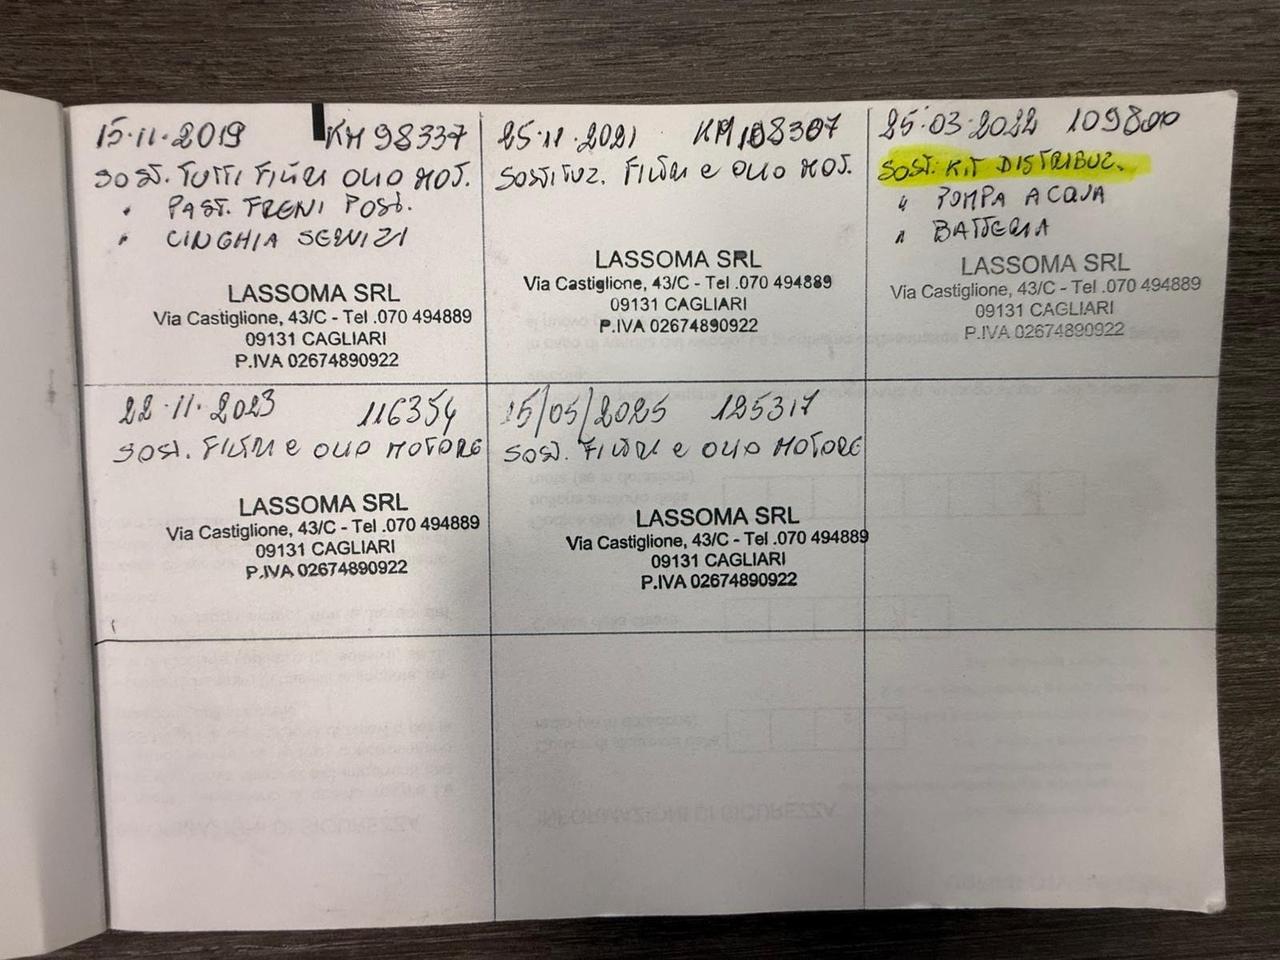 15.11.2019 KM 98337
SOST. TUTTI FILTRI OLIO MOT.
" PAST. FRENI POST.
" CINGHIA SERVIZI
LASSOMA SRL
Via Castiglione, 43/C - Tel .070 494889
09131 CAGLIARI
P.IVA 02674890922
25.11.2021 KM 108307
SOSTITUZ. FILTRI e OLIO MOT.
LASSOMA SRL
Via Castiglione, 43/C - Tel .070 494889
09131 CAGLIARI
P.IVA 02674890922
25.03.2022 109800
SOST. KIT DISTRIBUZ.
" POMPA ACQUA
" BATTERIA
LASSOMA SRL
Via Castiglione, 43/C - Tel .070 494889
09131 CAGLIARI
P.IVA 02674890922
22.11.2023 116354
SOST. FILTRI e OLIO MOTORE
LASSOMA SRL
Via Castiglione, 43/C - Tel .070 494889
09131 CAGLIARI
P.IVA 02674890922
15/05/2025 125317
SOST. FILTRI e OLIO MOTORE
LASSOMA SRL
Via Castiglione, 43/C - Tel .070 494889
09131 CAGLIARI
P.IVA 02674890922